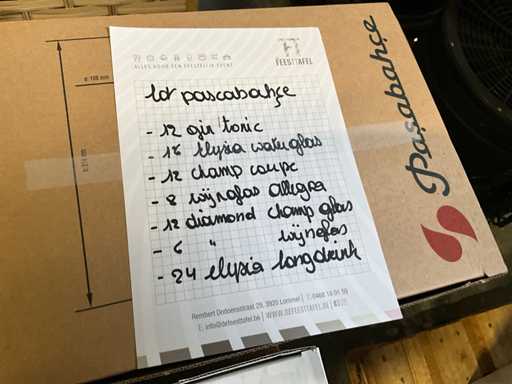 FEESTTAFEL
ALLES VOOR EEN FEESTELIJK EVENT
lot pascabahçe
- 12 gin tonic
- 16 Elysia waterglas
- 12 champ coupe
- 8 wijnglas allegra
- 12 diamond champ glas
- 6 " wijnglas
- 24 Elysia longdrink
Rembert Dodoensstraat 29, 3920 Lommel
E. info@defeesttafel.be | WWW.DEFEESTTAFEL.BE
Paşabahçe